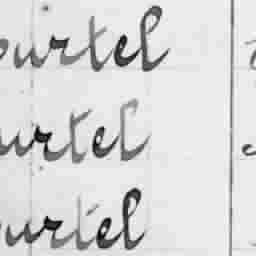 ourtel
urtel
ourtel